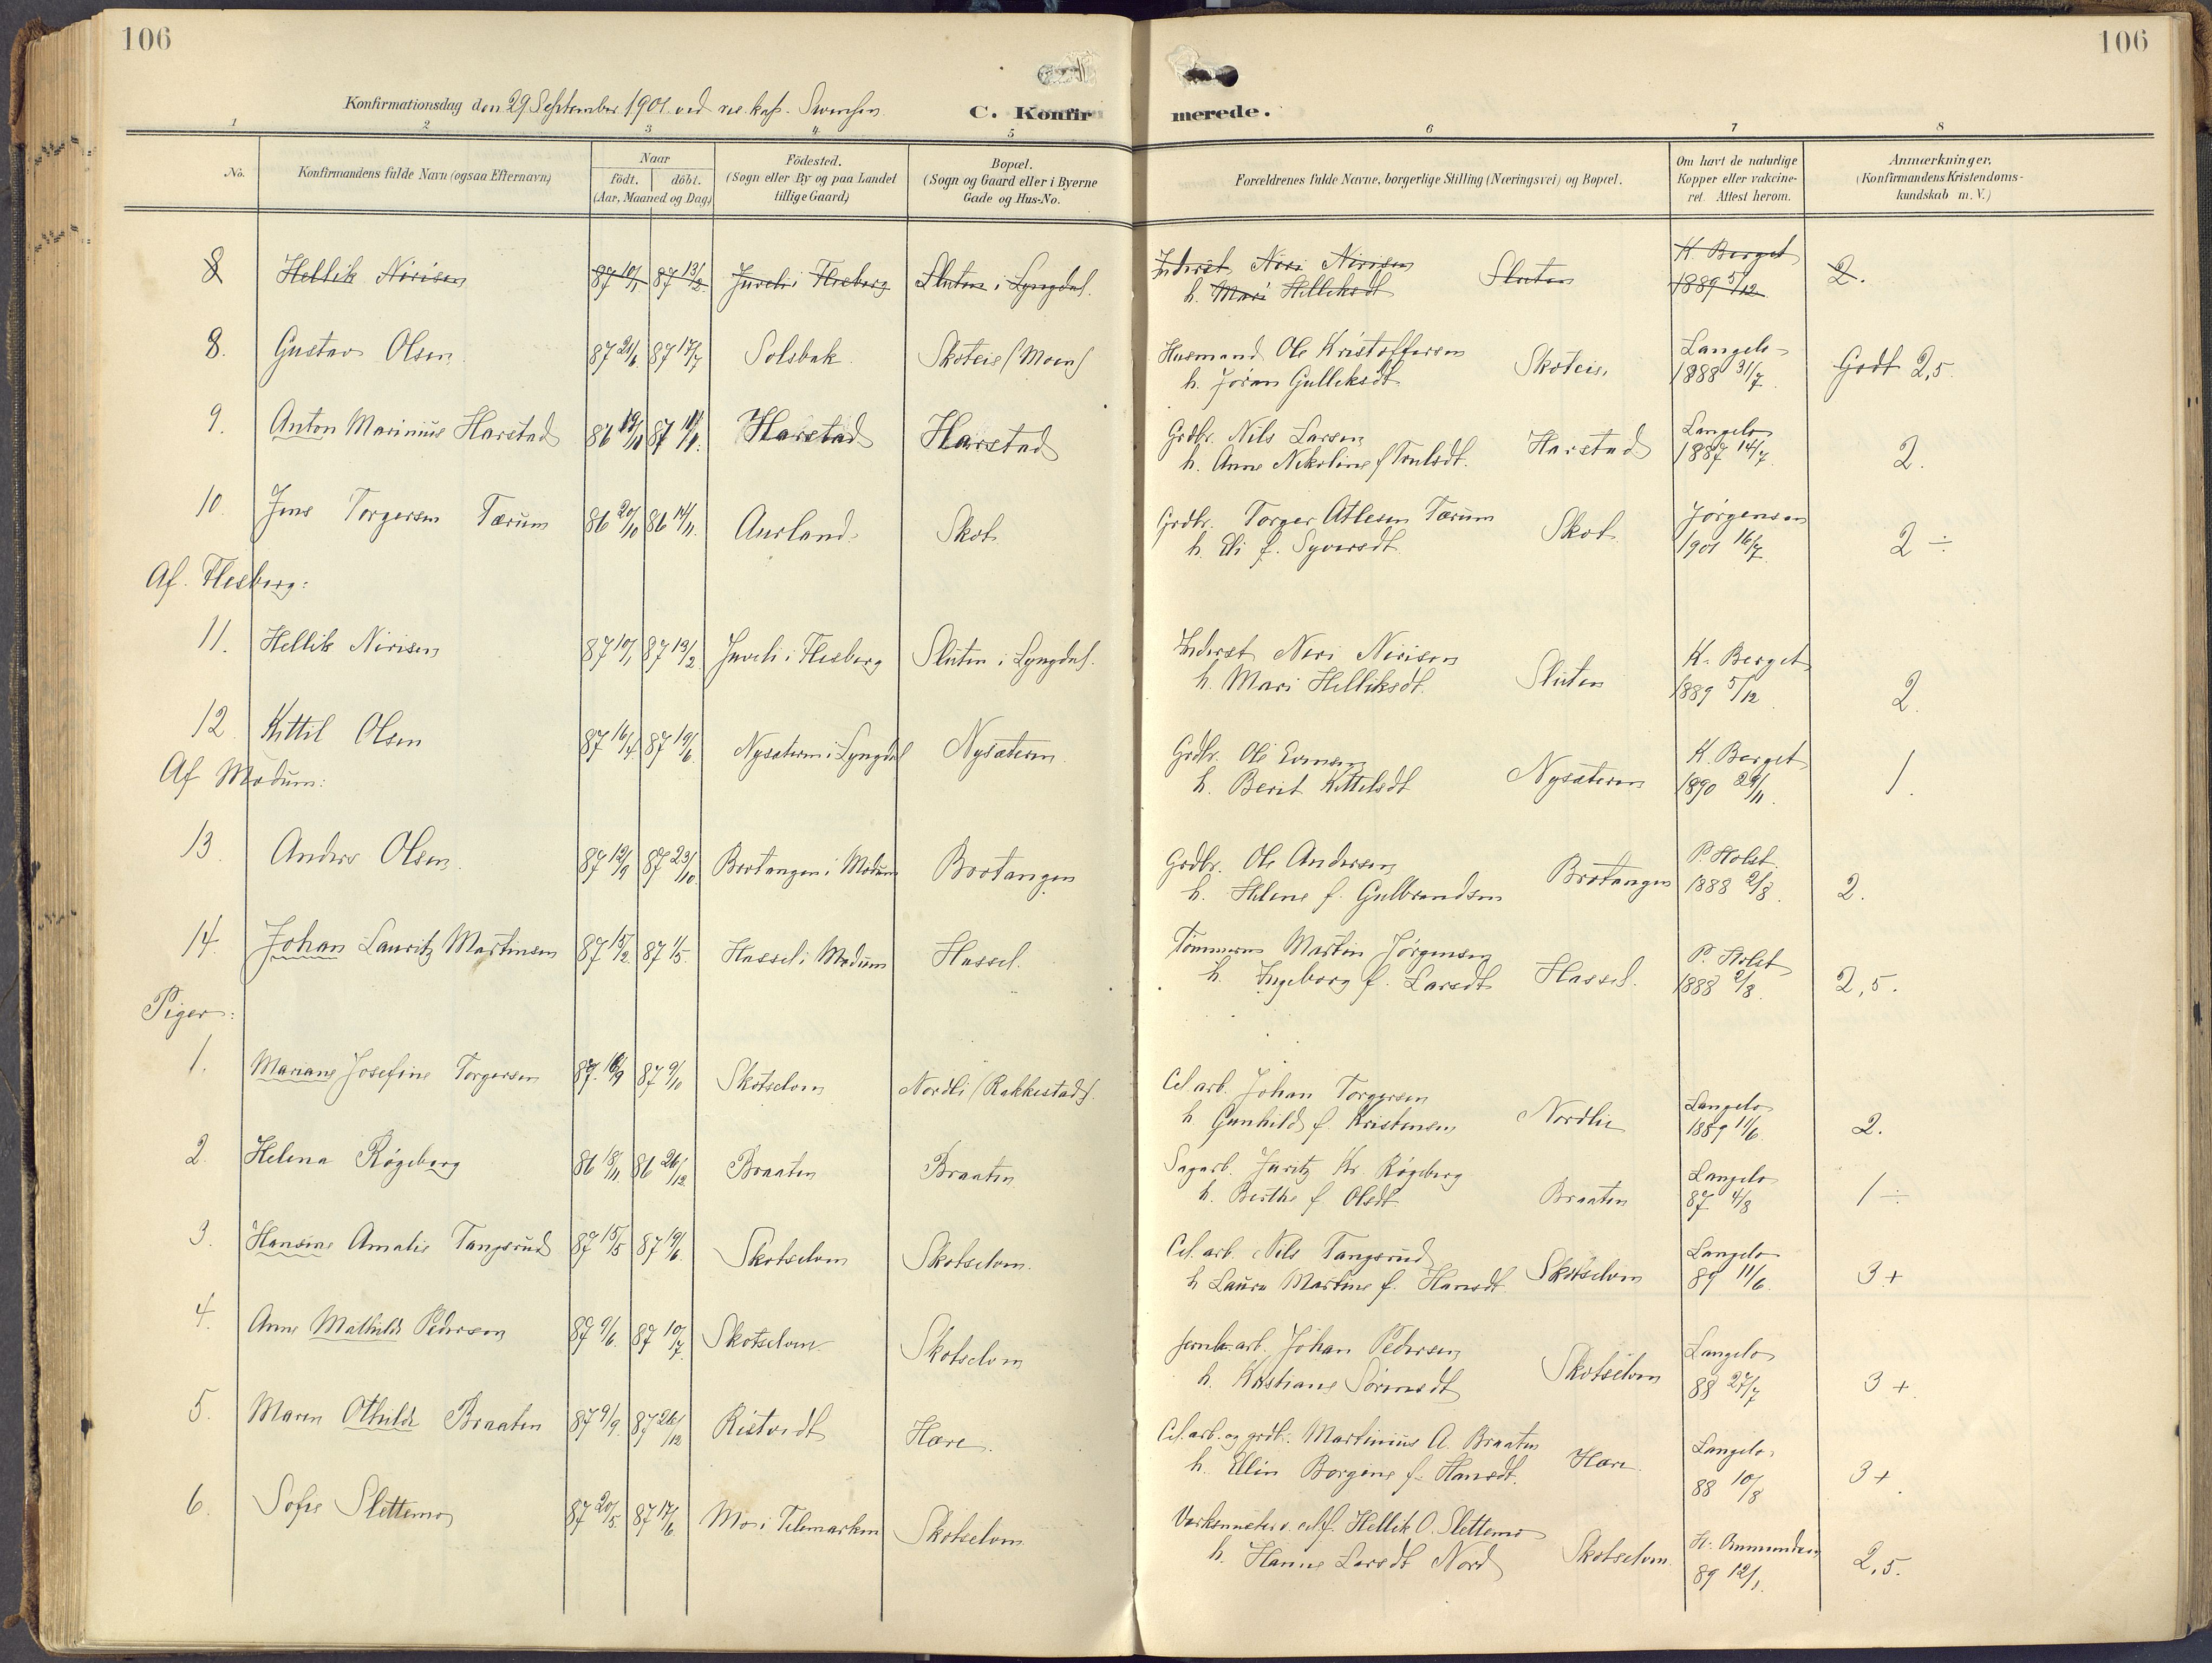 106
106
Konfirmationsdag den 29 September 1901 ved res. kap.
C. Konfir
merede.
1 2 3 4 5 6 7 8
No. Konfirmandens fulde Navn (ogsaa Efternavn) Naar født. døbt. (Aar, Maaned og Dag) Födested. (Sogn eller By og paa Landet tillige Gaard) Bopæl. (Sogn og Gaard eller i Byerne Gade og Hus-No. Forældrenes fulde Navne, borgerlige Stilling (Næringsvei) og Bopæl. Om havt de naturlige Kopper eller vakcine-ret. Attest herom. Anmærkninger. (Konfirmandens Kristendoms-kundskab m. V.)
8 Hellik Nirisen 87 10/1 87 13/2 Juveli i Flesberg Sluten i Lyngdal. Inderst Niri Nirisen Sluten K. Berget
h. Mari Helliksdt 1889 5/12 2.
8. Gustav Olsen 87 21/6 87 17/7 Solsbak Skoteie (Moen) Husmand Ole Kristoffersen Skoteie. Langelo
h. Jøran Gulleksdt. 1888 31/7 Godt 2,5.
9. Anton Marinius Harstad 86 87 Harstad Harstad Grdbr. Nils Larsen Harstad Langelo
h. Anne Nikoline f. Trulsdt. 1887 14/7. 2.
10. Jens Torgersen Tærum 86 20/10 86 14/11. Aurland. Skot Grdbr. Torger Atlesen Tærum Skot Jørgensen
h. Eli f. Syversdt. 1901 16/7. 2 ÷
Af. Flesberg:
11. Hellik Nirisen 87 10/1 87 13/2 Juveli i Flesberg Sluten i Lyngdal. Inderst Niri Nirisen Sluten K. Berget
h. Mari Helliksdt. 1889 5/12 2.
12. Kittil Olsen 87 16/4. 87 19/6. Nysæteren i Lyngdal Nysæteren. Grdbr. Ole Evensen Nysæteren K. Berget
h. Berit Kittelsdt 1890 24/11. 1.
Af Modum:
13. Anders Olsen. 87 12/9 87 23/10. Brotangen i Modum Brotangen Grdbr. Ole Andersen Brotangen P. Holst
h. Helene f. Gulbrandsen 1888 2/8. 2.
14. Johan Lauritz Martinsen 87 15/2. 87 1/5. Hassel i Modum Hassel. Tømmerm. Martin Jørgensen Hassel. P. Holst
h. Ingeborg f. Larsdt 1888 2/8. 2,5.
Piger:
1. Mariane Josefine Torgersen 87. 16/9 87 9/10 Skotselven Nordli (Rakkestad). Cel. arb. Johan Torgersen Nordlie Langelo
h. Gunhild f. Kristensen 1889 11/6. 2.
2. Helena Røgeberg 86 18/11. 86 26/12 Braaten Braaten Sagarb. Juritz Kr. Røgeberg Braaten Langelo
h. Berthe f. Olsdt 87 4/8 1 ÷
3. Hansine Amalie Tangsrud 87 15/5 87 19/6. Skotselven Skotselven. Cel. arb. Nils Tangsrud Skotselven Langelo
h. Laura Martine f. Hansdt. 89 11/6. 3 +
4. Anne Mathilde Pedersen 87 9/6. 87 10/7. Skotselven Skotselven Jernb. arb. Johan Pedersen Skotselven Langelo
h. Kristiane Sørensdt 88 27/7 3 +
5. Maren Othilde Braaten 87 9/9. 87 26/12 Ristvedt Hære. Cel. arb. og grdb. Martinius A. Braaten Hære. Langelo.
h. Elin Borgine f. Hansdt. 88 10/8 3 +
6. Sofie Slettemo 87 20/5. 87 17/6. Mo i Telemarken Skotselven Værksmester v. celf. Hellik O. Slettemo Skotselven. H. Anmundsen
h. Hanne Larsdt Nord 89 12/1. 2,5.